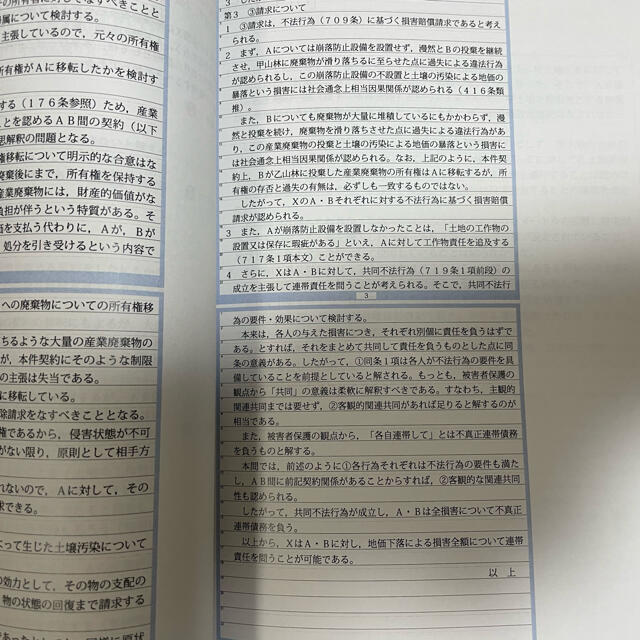 者に対してなすべきことと
属について検討する。
主張しているので，元々の所有権
所有権がAに移転したかを検討す
する（１７６条参照）ため，産業
ことを認めるＡＢ間の契約（以下
思解釈の問題となる。
権移転について明示的な合意はな
廃棄後にまで，所有権を保持する
産業廃棄物には，財産的価値がな
負担が伴うという特質がある。そ
価を支払う代わりに，Ａが，Ｂが
処分を引き受けるという内容で
への廃棄物についての所有権移
ちるような大量の産業廃棄物の
が，本件契約にそのような制限
の主張は失当である。
に移転している。
除請求をなすべきこととなる。
権であるから，侵害状態が不可
がない限り，原則として相手方
れないので，Ａに対して，その
求できる。
よって生じた土壌汚染について
の効力として，その物の支配の
物の状態の回復まで請求する
第３　③請求について
１　③請求は，不法行為（７０９条）に基づく損害賠償請求であると考え
られる。
２　まず，Ａについては崩落防止設備を設置せず，漫然とＢの投棄を継続
させ，甲山林に廃棄物が滑り落ちるに至らせた点に過失による違法行為
が認められるし，この崩落防止設備の不設置と土壌の汚染による地価の
暴落という損害には社会通念上相当因果関係が認められる（４１６条類
推）。
また，Ｂについても廃棄物が大量に堆積しているにもかかわらず，漫
然と投棄を続け，廃棄物を滑り落ちさせた点に過失による違法行為があ
り，この産業廃棄物の投棄と土壌の汚染による地価の暴落という損害に
は社会通念上相当因果関係が認められる。なお，上記のように，本件契
約上，Ｂが乙山林に投棄した産業廃棄物の所有権はＡに移転するが，所
有権の存否と過失の有無は，必ずしも一致するものではない。
したがって，ＸのＡ・Ｂそれぞれに対する不法行為に基づく損害賠償
請求が認められる。
３　また，Ａが崩落防止設備を設置しなかったことは，「土地の工作物の
設置又は保存に瑕疵がある」といえ，Ａに対して工作物責任を追及する
（７１７条１項本文）ことができる。
４　さらに，ＸはＡ・Ｂに対して，共同不法行為（７１９条１項前段）の
成立を主張して連帯責任を問うことが考えられる。そこで，共同不法行
3
為の要件・効果について検討する。
本来は，各人の与えた損害につき，それぞれ別個に責任を負うはずで
ある。とすれば，それをまとめて共同して責任を負うものとした点に同
条の意義がある。したがって，①同条１項は各人が不法行為の要件を具
備していることを前提としていると解される。もっとも，被害者保護の
観点から「共同」の意義は柔軟に解釈すべきである。すなわち，主観的
関連共同までは要せず，②客観的関連共同があれば足りると解するのが
相当である。
また，被害者保護の観点から，「各自連帯して」とは不真正連帯債務
を負うものと解する。
本問では，前述のように①各行為それぞれは不法行為の要件も満た
し，ＡＢ間に前記契約関係があることからすれば，②客観的な関連共同
性も認められる。
したがって，共同不法行為が成立し，Ａ・Ｂは全損害について不真正
連帯債務を負う。
以上から，ＸはＡ・Ｂに対し，地価下落による損害全額について連帯
責任を問うことが可能である。
以　上